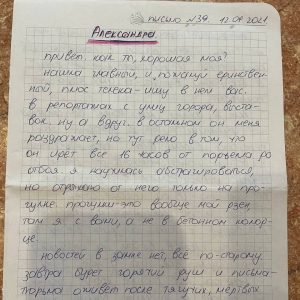 письмо №39. 17.04.2021
Александра
привет. как ты, хорошая моя?
нашла главный, и, пожалуй единствен-
ный, плюс телека - ищу в нем вас.
в репортажах с улиц города, выста-
вок. ну а вдруг. в остальном он меня
раздражает, но тут дело в том, что
он идёт все 16 часов от подъема до
отбоя я научилась абстрагироваться,
но отдыхаю от него только на про-
гулке. прогулки - это вообще мой дзен,
там я с вами, а не в бетонном колод-
це
новостей в замке нет, все по-старому.
завтра будет горячий душ и письма -
тюрьма оживет после тягучих, мертвых